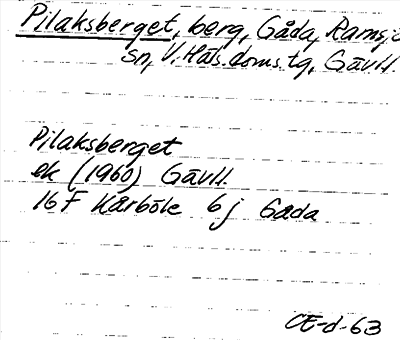 Pilaksberget, berg, Gåda, Ramsjö
sn, V. Häls. doms. tg, Gävll.
Pilaksberget
ek (1960) Gävll.
16F Kårböle 6j Gåda
CE-d-63